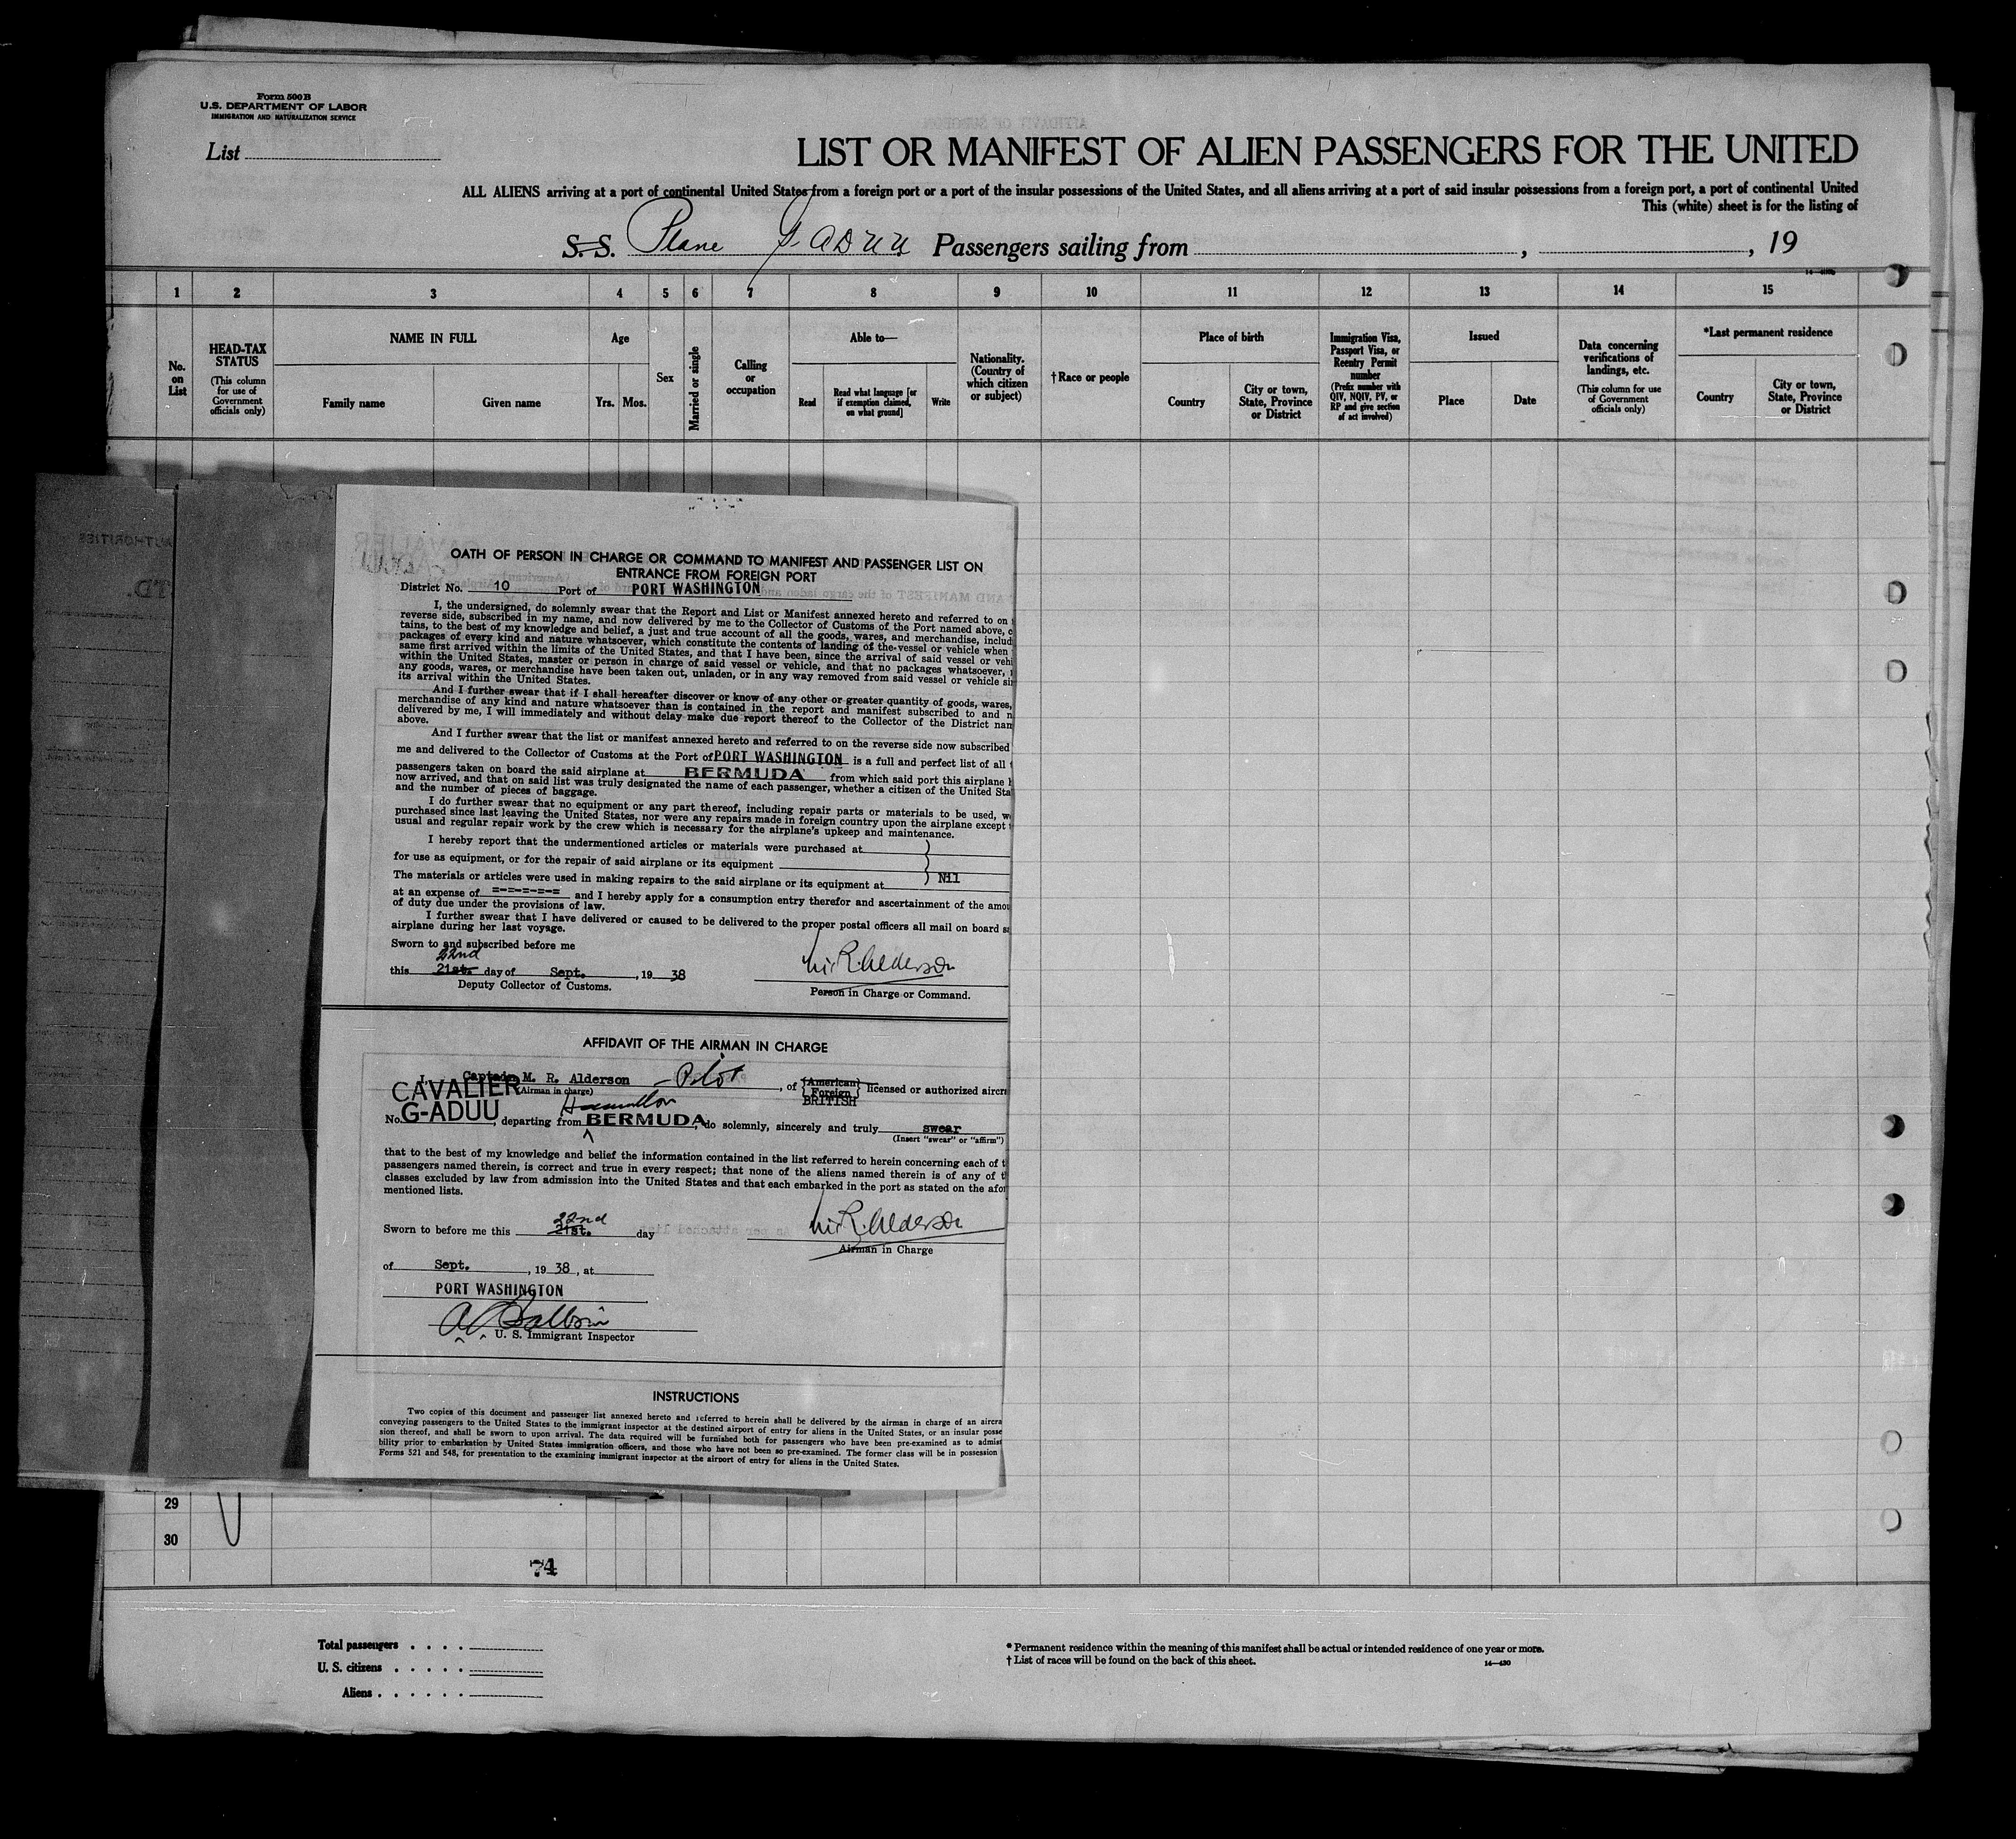 Form 500B
U.S. DEPARTMENT OF LABOR
IMMIGRATION AND NATURALIZATION SERVICE
List
LIST OR MANIFEST OF ALIEN PASSENGERS FOR THE UNITED
ALL ALIENS arriving at a port of continental United States from a foreign port or a port of the insular possessions of the United States, and all aliens arriving at a port of said insular possessions from a foreign port, a port of continental United
This (white) sheet is for the listing of
S.S. Plane G-ADUU Passengers sailing from , , 19
1 2 3 4 5 6 7 8 9 10 11 12 13 14 15
No. on List
HEAD-TAX STATUS
(This column for use of Government officials only)
NAME IN FULL
Family name Given name
Age
Yrs. Mos.
Sex
Married or single
Calling or occupation
Able to—
Read
Read what language [or if exemption claimed, on what ground]
Write
Nationality. (Country of which citizen or subject)
†Race or people
Place of birth
Country
City or town, State, Province or District
Immigration Visa, Passport Visa, or Reentry Permit number
(Prefix number with QIV, NQIV, PV, or RP and give section of act involved)
Issued
Place Date
Data concerning verifications of landings, etc.
(This column for use of Government officials only)
*Last permanent residence
Country
City or town, State, Province or District
OATH OF PERSON IN CHARGE OR COMMAND TO MANIFEST AND PASSENGER LIST ON
ENTRANCE FROM FOREIGN PORT
District No. 10 Port of PORT WASHINGTON
I, the undersigned, do solemnly swear that the Report and List or Manifest annexed hereto and referred to on
reverse side, subscribed in my name, and now delivered by me to the Collector of Customs of the Port named above, c
tains, to the best of my knowledge and belief, a just and true account of all the goods, wares, and merchandise, includ
packages of every kind and nature whatsoever, which constitute the contents of landing of the vessel or vehicle when
same first arrived within the limits of the United States, and that I have been, since the arrival of said vessel or vehi
within the United States, master or person in charge of said vessel or vehicle, and that no packages whatsoever,
any goods, wares, or merchandise have been taken out, unladen, or in any way removed from said vessel or vehicle si
its arrival within the United States.
And I further swear that if I shall hereafter discover or know of any other or greater quantity of goods, wares,
merchandise of any kind and nature whatsoever than is contained in the report and manifest subscribed to and n
delivered by me, I will immediately and without delay make due report thereof to the Collector of the District nam
above.
And I further swear that the list or manifest annexed hereto and referred to on the reverse side now subscribed
me and delivered to the Collector of Customs at the Port of PORT WASHINGTON is a full and perfect list of all
passengers taken on board the said airplane at BERMUDA from which said port this airplane h
now arrived, and that on said list was truly designated the name of each passenger, whether a citizen of the United Sta
and the number of pieces of baggage.
I do further swear that no equipment or any part thereof, including repair parts or materials to be used, w
purchased since last leaving the United States, nor were any repairs made in foreign country upon the airplane except
usual and regular repair work by the crew which is necessary for the airplane's upkeep and maintenance.
I hereby report that the undermentioned articles or materials were purchased at
for use as equipment, or for the repair of said airplane or its equipment
The materials or articles were used in making repairs to the said airplane or its equipment at Nil
at an expense of =-=-=-=-= and I hereby apply for a consumption entry therefor and ascertainment of the amou
of duty due under the provisions of law.
I further swear that I have delivered or caused to be delivered to the proper postal officers all mail on board s
airplane during her last voyage.
Sworn to and subscribed before me
22nd
this 21st. day of Sept. , 19 38 M.R. Alderson
Deputy Collector of Customs. Person in Charge or Command.
AFFIDAVIT OF THE AIRMAN IN CHARGE
I, Captain M. R. Alderson - Pilot , of {American Foreign} licensed or authorized aircr
CAVALIER (Airman in charge) BRITISH
Hamilton
No. G-ADUU , departing from BERMUDA, do solemnly, sincerely and truly swear
(Insert "swear" or "affirm")
that to the best of my knowledge and belief the information contained in the list referred to herein concerning each of t
passengers named therein, is correct and true in every respect; that none of the aliens named therein is of any of t
classes excluded by law from admission into the United States and that each embarked in the port as stated on the afor
mentioned lists.
22nd
Sworn to before me this 21st. day M.R. Alderson
Airman in Charge
of Sept. , 19 38 , at
PORT WASHINGTON
U. S. Immigrant Inspector
INSTRUCTIONS
Two copies of this document and passenger list annexed hereto and referred to herein shall be delivered by the airman in charge of an aircra
conveying passengers to the United States to the immigrant inspector at the destined airport of entry for aliens in the United States, or an insular posse
sion thereof, and shall be sworn to upon arrival. The data required will be furnished both for passengers who have been pre-examined as to admis
bility prior to embarkation by United States immigration officers, and those who have not been so pre-examined. The former class will be in possession
Forms 521 and 548, for presentation to the examining immigrant inspector at the airport of entry for aliens in the United States.
29
30
74
Total passengers . . . .
U. S. citizens . . . . .
Aliens . . . . . .
* Permanent residence within the meaning of this manifest shall be actual or intended residence of one year or more.
† List of races will be found on the back of this sheet.
14—430